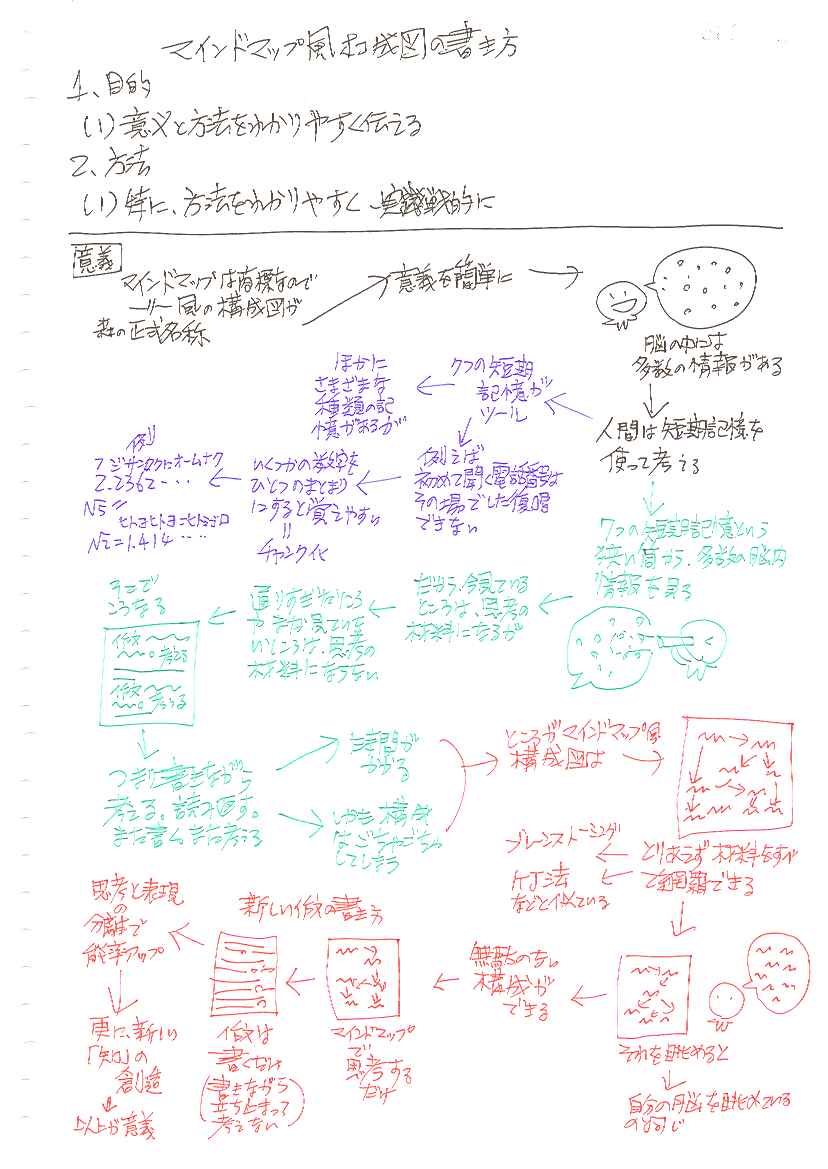 マインドマップ風構成図の書き方
1、目的
(1)意義と方法をわかりやすく伝える
2、方法
(1)特に、方法をわかりやすく実践的に
意義
マインドマップは商標なので
〃 風の構成図が
森の正式名称
意義を簡単に
脳の中には
多数の情報がある
人間は短期記憶を
使って考える
7つの短期
記憶が
ツール
ほかに
さまざまな
種類の記
憶があるが
例えば
初めて聞く電話番号は
その場でした復唱
できない
いくつかの数字を
ひとつのまとまり
にすると覚えやすい
||
チャンク化
例)
フジサンロクにオームナク
2.2362‥‥
√5
ヒトヨヒトヨニヒトミゴロ
√2=1.414‥‥
7つの短期記憶という
狭い筒から、多数の脳内
情報を見る
だから、今見ている
ところは、思考の
材料になるが
通りすぎたところ
やまだ見ていな
いところは、思考の
材料にならない
そこで
こうなる
作文
考える
作文
考える
つぎに書きながら
考える。読み返す。
また書く。また考える
時間が
かかる
しかも構成
はごちゃごちゃ
してしまう
ところがマインドマップ風
構成図は
とりあえず材料をすべ
て網羅できる
ブレーンストーミング
KJ法
などと似ている
それを眺めると
自分の脳を眺めている
のと同じ
無駄のない
構成が
できる
新しい作文の書き方
マインドマップ
で
思考する
だけ
作文は
書くだけ
(書きながら
立ち止まって
考えない)
思考と表現
の
分離で
能率アップ
更に、新しい
「知」の
創造
以上が意義